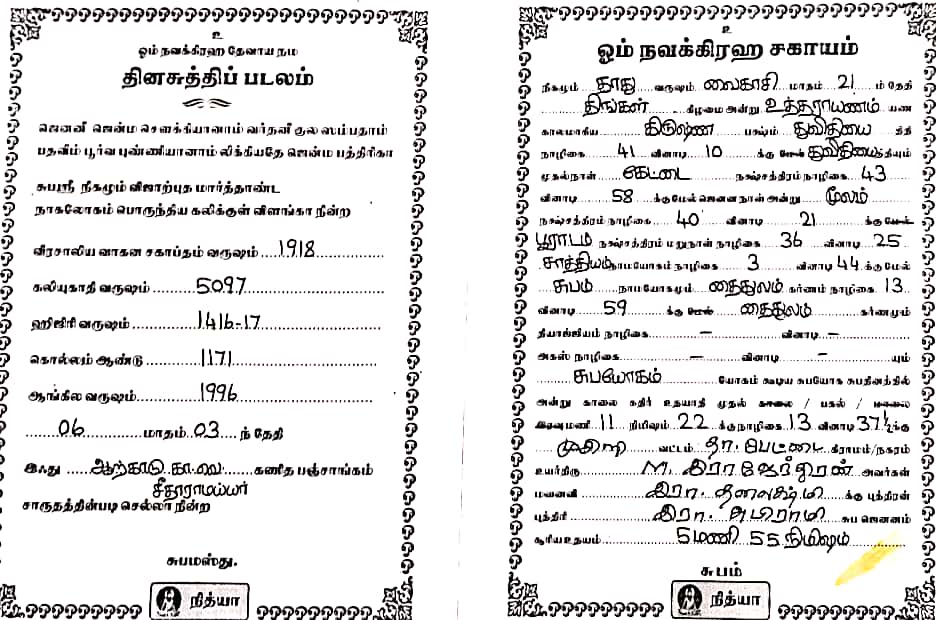 உ
ஓம் நவக்கிரஹ தேவாய நம
தினசுத்திப் படலம்
ஜெனனீ ஜென்ம சௌக்கியானாம் வர்தனீ குல ஸம்பதாம்
பதவீம் பூர்வ புண்ணியானாம் லிக்கியதே ஜென்ம பத்திரிகா
சுபஸ்ரீ நிகழும் விஜாற்புத மார்த்தாண்ட
நாகலோகம் பொருந்திய கலிக்குள் விளங்கா நின்ற
வீரசாலிய வாகன சகாப்தம் வருஷம் ....1918.......
கலியுகாதி வருஷம் ..........5097..............
ஹிஜிரி வருஷம் ..............1416-17..............
கொல்லம் ஆண்டு ..............1171..............
ஆங்கில வருஷம் ..............1996..............
......06..............மாதம்...03.... ந் தேதி
இஃது .....ஆற்காடு. கா. வெ......கணித பஞ்சாங்கம்
சீதாராமய்யர்
சாருதத்தின்படி செல்லா நின்ற
சுபமஸ்து.
நித்யா
உ
ஓம் நவக்கிரஹ சகாயம்
நிகழும் தாது.....வருஷம் வைகாசி மாதம் 21 ம் தேதி
திங்கள்......கிழமை அன்று உத்தராயணம் யண
காலமாகிய........கிருஷ்ண......பக்ஷம் துவிதியை திதி
நாழிகை 41 வினாடி 10 க்கு மேல் துவிதியை தியும்
முதல்நாள்......கேட்டை......நக்ஷத்திரம் நாழிகை 43
வினாடி 58 க்குமேல் ஜெனன நாள் அன்று மூலம்
நக்ஷத்திரம் நாழிகை 40 வினாடி 21 க்கு மேல்
பூராடம் நக்ஷத்திரம் மறுநாள் நாழிகை 36 வினாடி 25
சாத்தியம் நாமயோகம் நாழிகை 3 வினாடி 44 க்கு மேல்
சுபம் நாமயோகமும் தைதுலம் கர்ணம் நாழிகை 13
வினாடி 59 க்கு மேல் தைதுலம் கர்ணமும்
தியாஜ்ஜியம் நாழிகை......–......வினாடி......–......
அகஸ் நாழிகை......–......வினாடி......–......யும்
சுபயோகம்......யோகம் கூடிய சுபயோக சுபதினத்தில்
அன்று காலை கதிர் உதயாதி முதல் காலை / பகல் / மாலை
இரவு மணி 11 நிமிஷம் 22 க்கு நாழிகை 13 வினாடி 37½க்கு
வட்டம் தா. பேட்டை கிராமம்/நகரம்
உயர்திரு......M. இராஜேந்திரன் அவர்கள்
மனைவி......இரா. தனலக்ஷ்மி......க்கு புத்திரன்
புத்திரி......இரா. அபிராமி சுப ஜெனனம்
சூரிய உதயம்......5 மணி 55 நிமிஷம்......
சுபம்
நித்யா